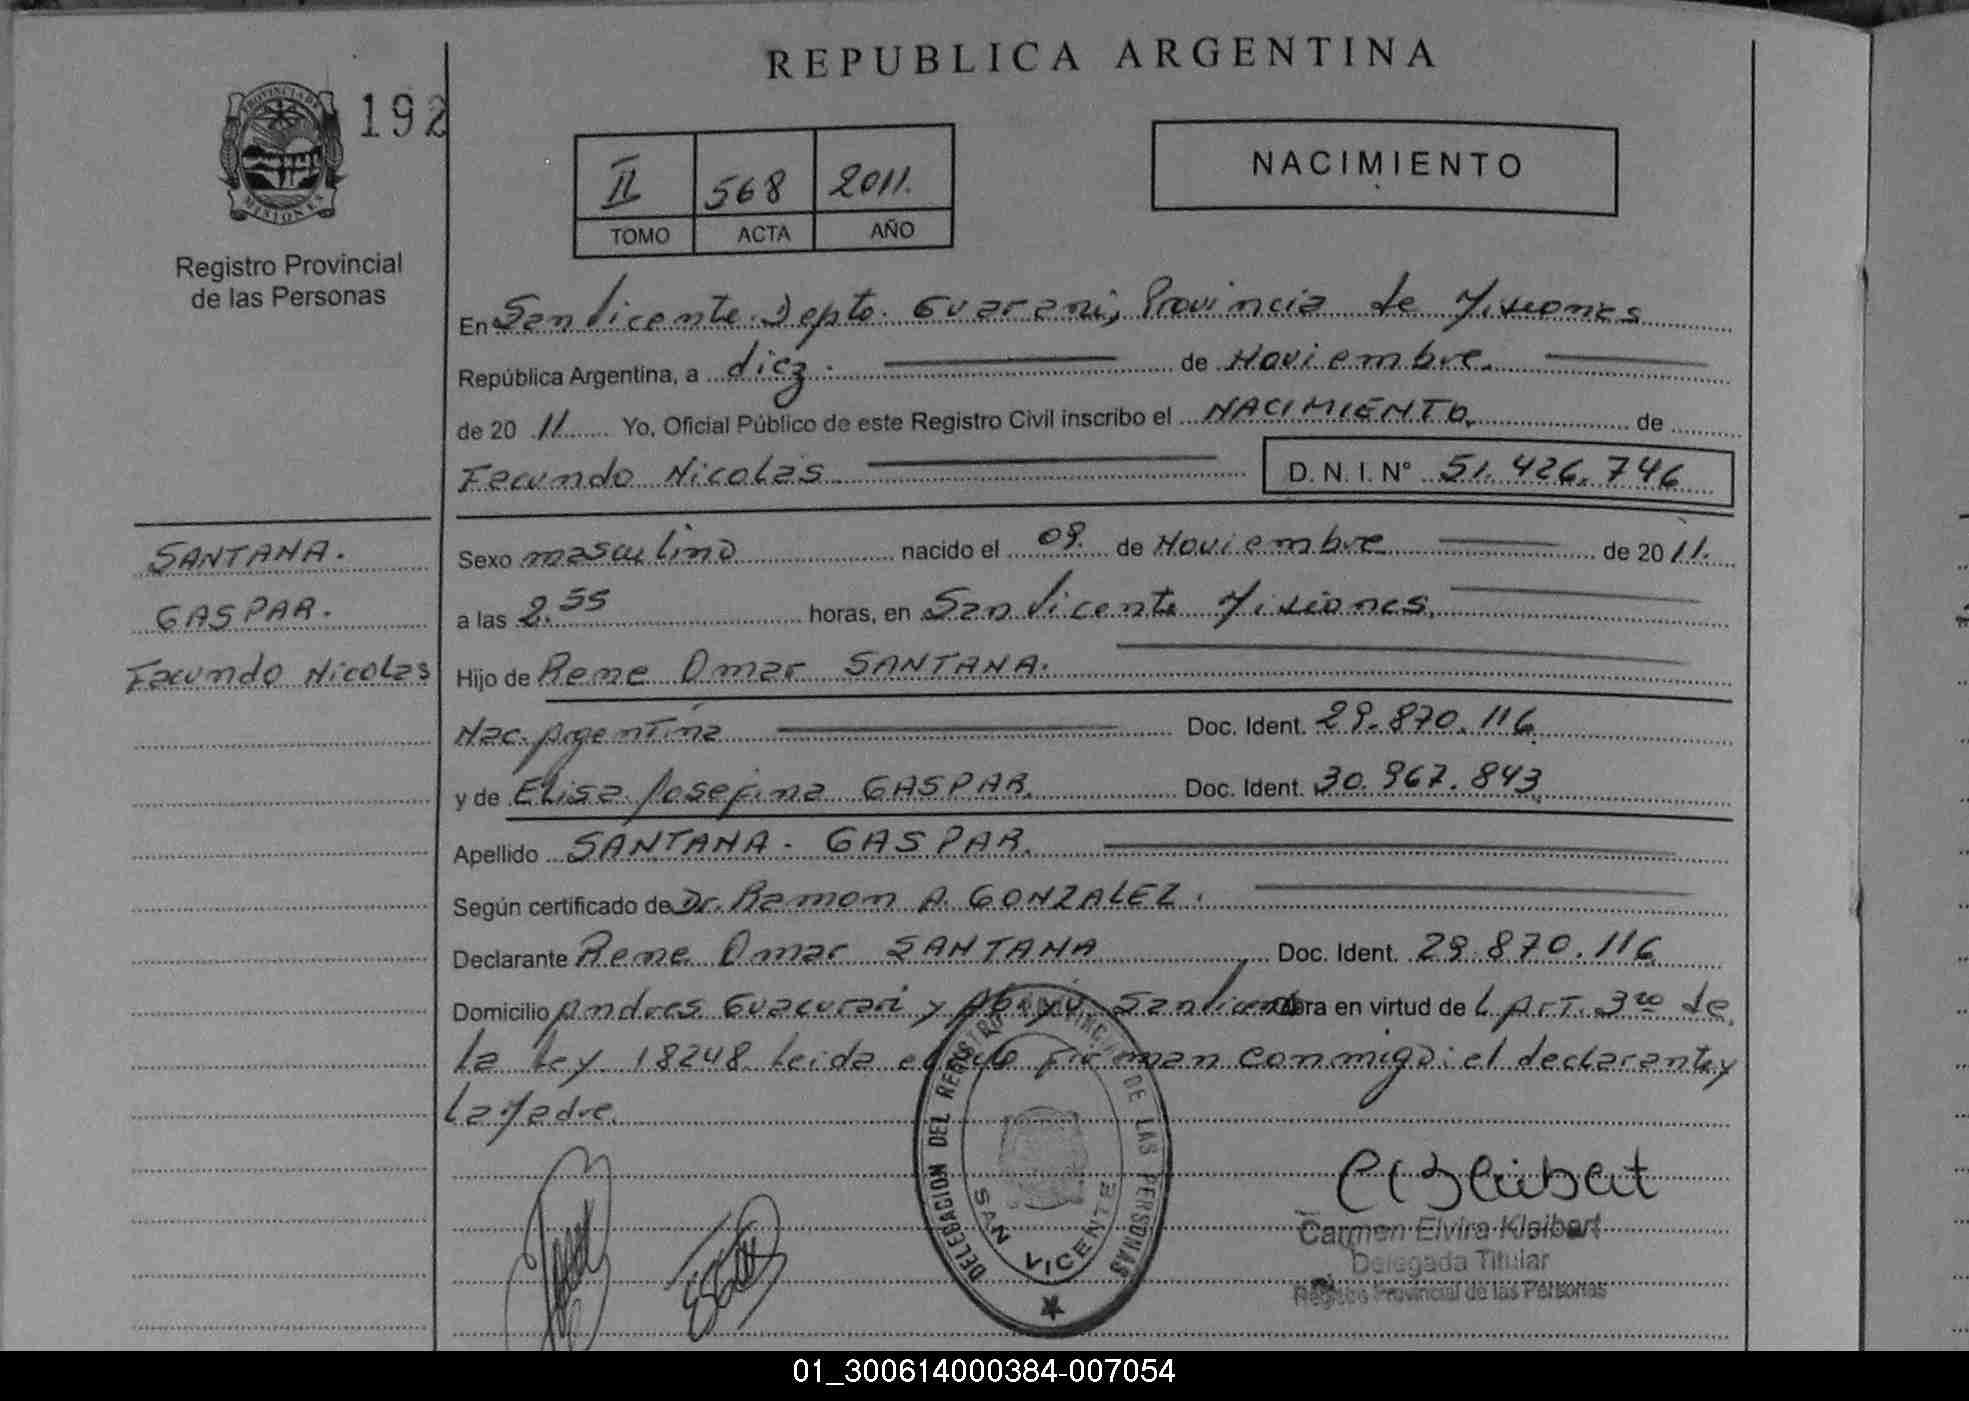 REPUBLICA ARGENTINA
PROVINCIA DE
MISIONES
192
Registro Provincial
de las Personas
II 568 2011.
TOMO ACTA AÑO
NACIMIENTO
En San Vicente. Depto. Guarani, Provincia de Misiones
República Argentina, a diez. de Noviembre.
de 20 11 Yo, Oficial Público de este Registro Civil inscribo el NACIMIENTO. de
Facundo Nicolas D.N.I. N° 51.426.746
SANTANA.
GASPAR.
Facundo Nicolas
Sexo masculino nacido el 09. de Noviembre de 20 11.
a las 2.55 horas, en San Vicente Misiones.
Hijo de Rene Omar SANTANA.
Nac. Argentina Doc. Ident. 29.870.116
y de Elisa Josefina GASPAR. Doc. Ident. 30.967.843
Apellido SANTANA - GASPAR.
Según certificado de Dr. Ramon A. GONZALEZ.
Declarante Rene Omar SANTANA Doc. Ident. 29.870.116
Domicilio Andres Guacurari y San Vicente obra en virtud de l Art. 3ro de
la Ley 18248. Leida el firman conmigo: el declarante y
la Madre.
DELEGACION DEL REGISTRO PROVINCIAL DE LAS PERSONAS
SAN VICENTE
Carmen Elvira Kleibert
Delegada Titular
Registro Provincial de las Personas
01_300614000384-007054